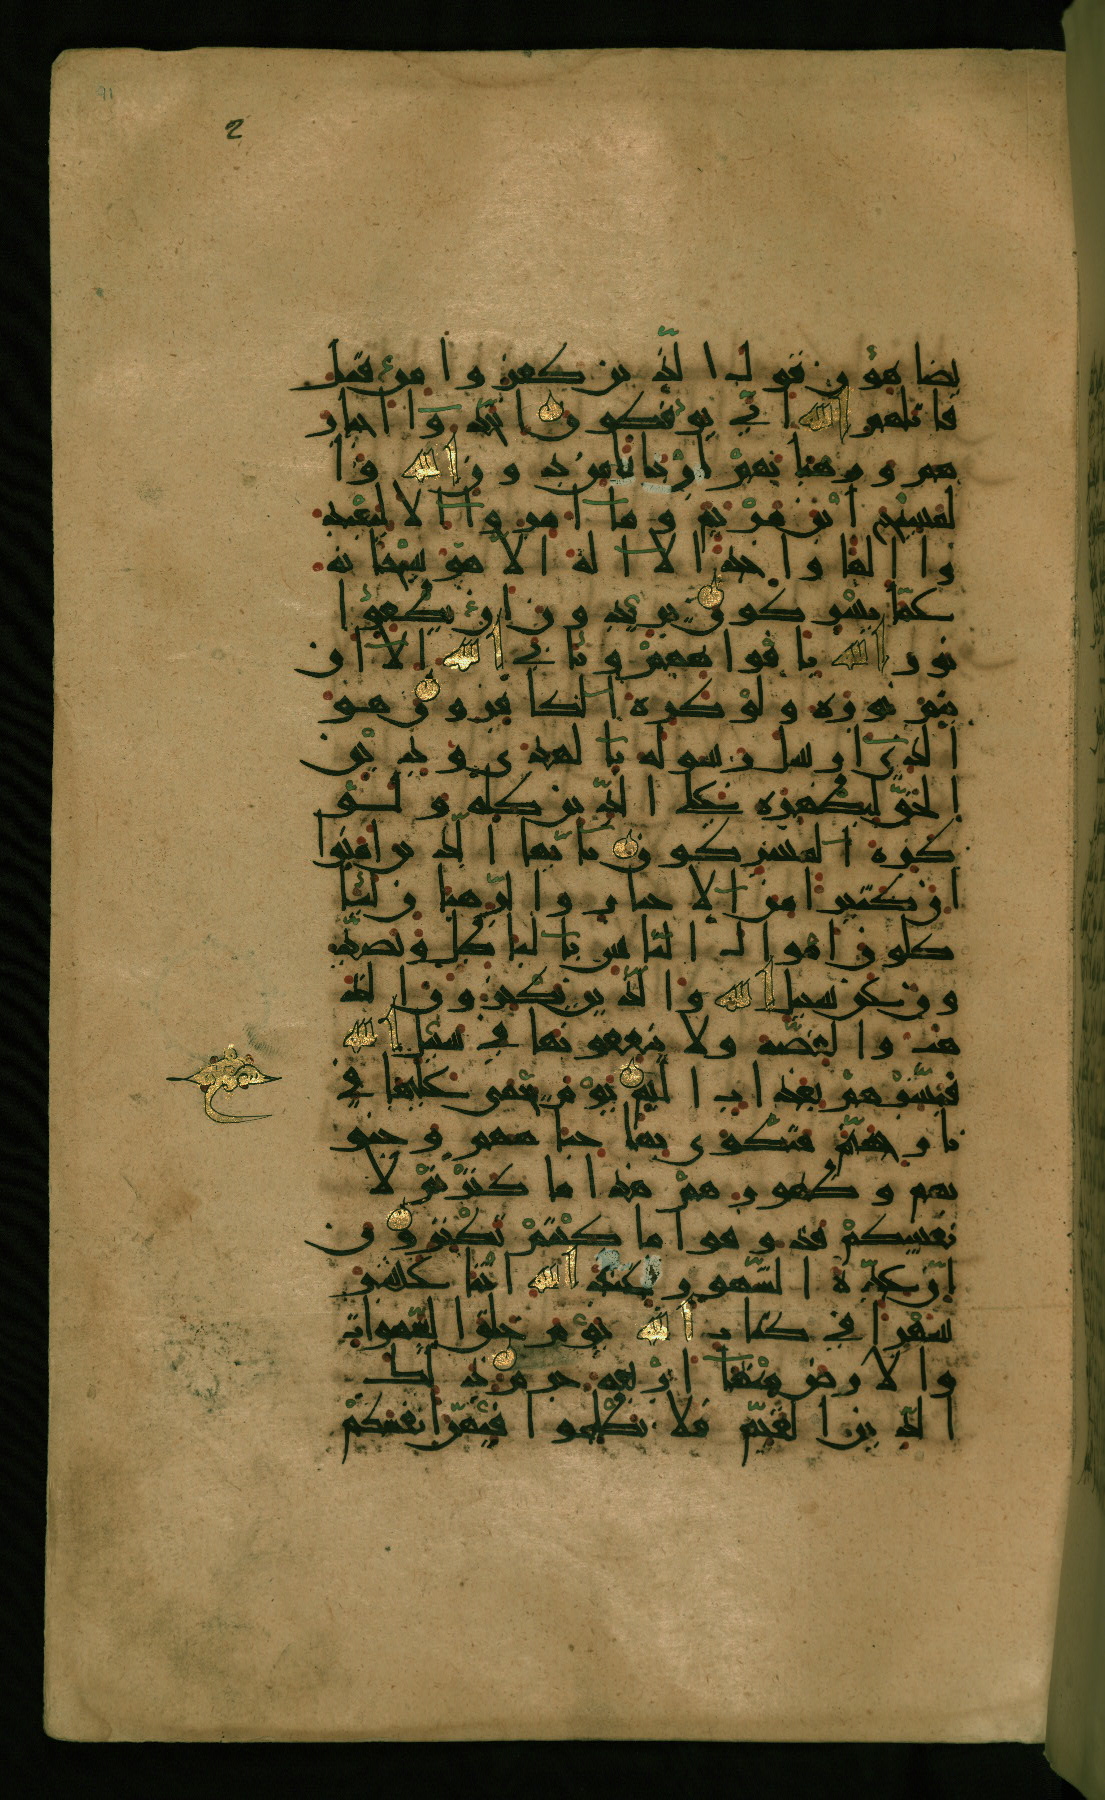 91
2
يضاهؤن قول الذين كفروا من قبل
قاتلهم الله انى يؤفكون اتخذوا احبار
هم ورهبانهم اربابا من دون الله وا
لمسيح ابن مريم وما امروا الا ليعبد
وا الها واحدا لا اله الا هو سبحانه
عما يشركون يريدون ان يطفؤا
نور الله بافواههم ويابى الله الا ان
يتم نوره ولو كره الكافرون هو
الذى ارسل رسوله بالهدى ودين
الحق ليظهره على الدين كله ولو
كره المشركون يايها الذين امنوا
ان كثيرا من الاحبار والرهبان ليا
كلون اموال الناس بالباطل ويصد
ون عن سبيل الله والذين يكنزون الذ
هب والفضة ولا ينفقونها في سبيل الله
فبشرهم بعذاب اليم يوم يحمى عليها في
نار جهنم فتكوى بها جباههم وجنو
بهم وظهورهم هذا ما كنزتم لا
نفسكم فذوقوا ما كنتم تكنزون
ان عدة الشهور عند الله اثنا عشر
شهرا في كتاب الله يوم خلق السموات
والارض منها اربعة حرم ذلك
الدين القيم فلا تظلموا فيهن انفسكم